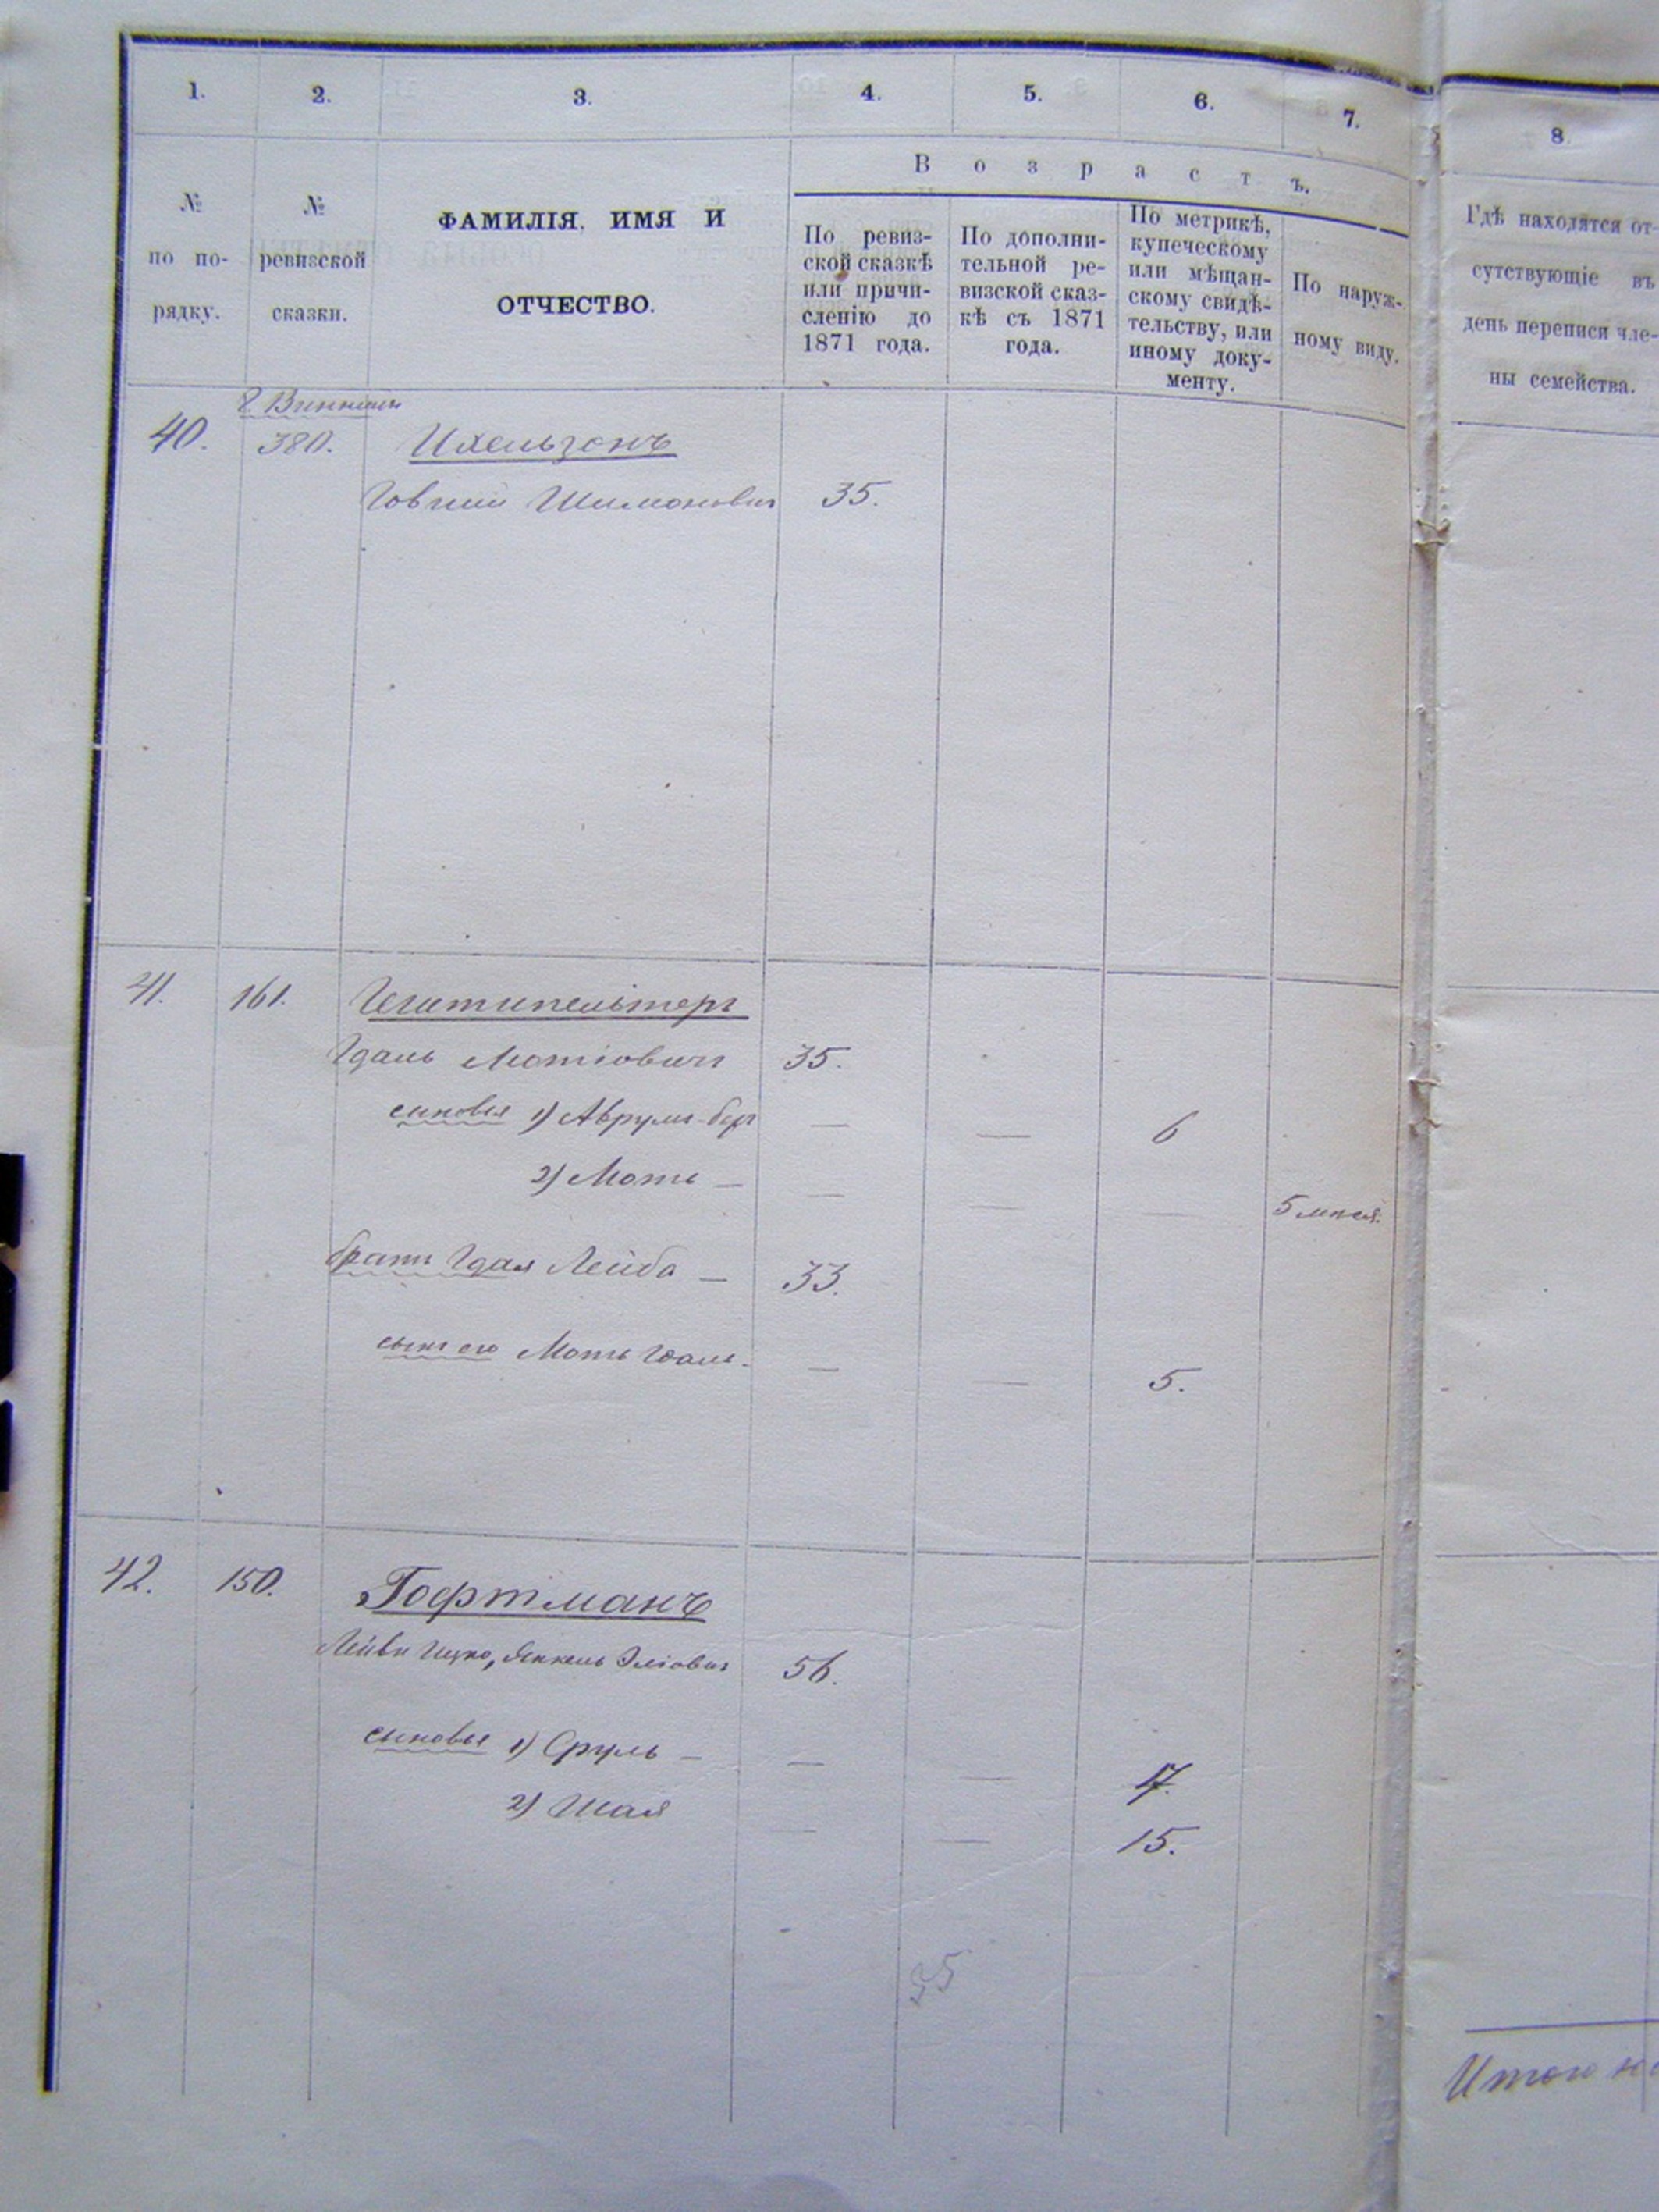 1. 2. 3. 4. 5. 6. 7. 8.
Возрастъ.
№ по по-рядку.
№ ревизской сказки.
ФАМИЛІЯ, ИМЯ И
ОТЧЕСТВО.
По ревиз-
ской сказкѣ
или причи-
сленію до
1871 года.
По дополни-
тельной ре-
визской сказ-
кѣ съ 1871
года.
По метрикѣ,
купеческому
или мѣщан-
скому свидѣ-
тельству, или
иному доку-
менту.
По наруж-
ному виду.
Гдѣ находятся от-
сутствующіе въ
день переписи чле-
ны семейства.
г. Винница
40. 380. Ихельзонъ
Шимоновичъ 35.
41. 161.
Гдаль Мотіовичъ 35.
сыновья 1) Аврумъ-беръ — — 6
2) Моть — — — — 5 мѣсяц.
братъ Гдаля Лейба — 33.
сынъ его Моть Гдаль. — — 5.
42. 150. Гофтманъ
Лейви Ицко, Янкель Эліовичъ 56.
сыновья 1) Сруль — — — 17.
2) Шая — — 15.
35
Итого